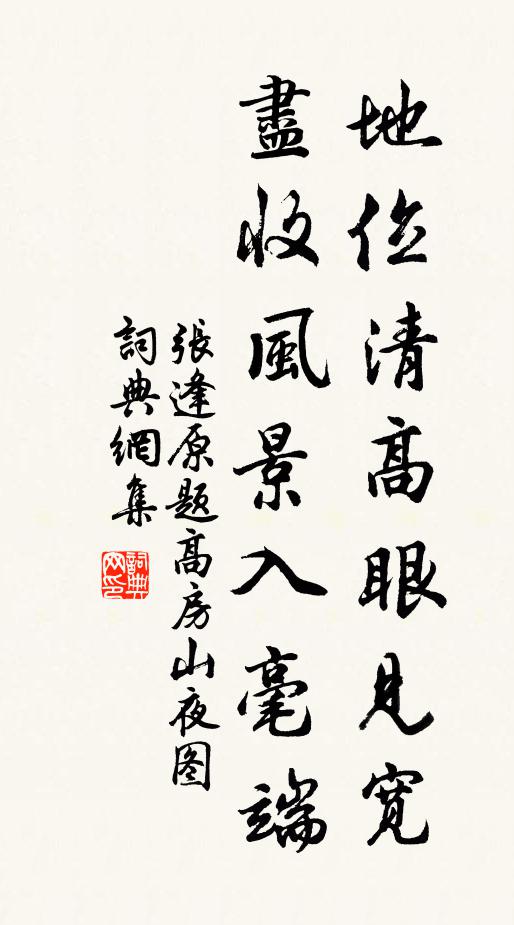 地位清高眼見寬
盡收風景入毫端
張逢原题高房山夜图
詞典網集
詞典
网印